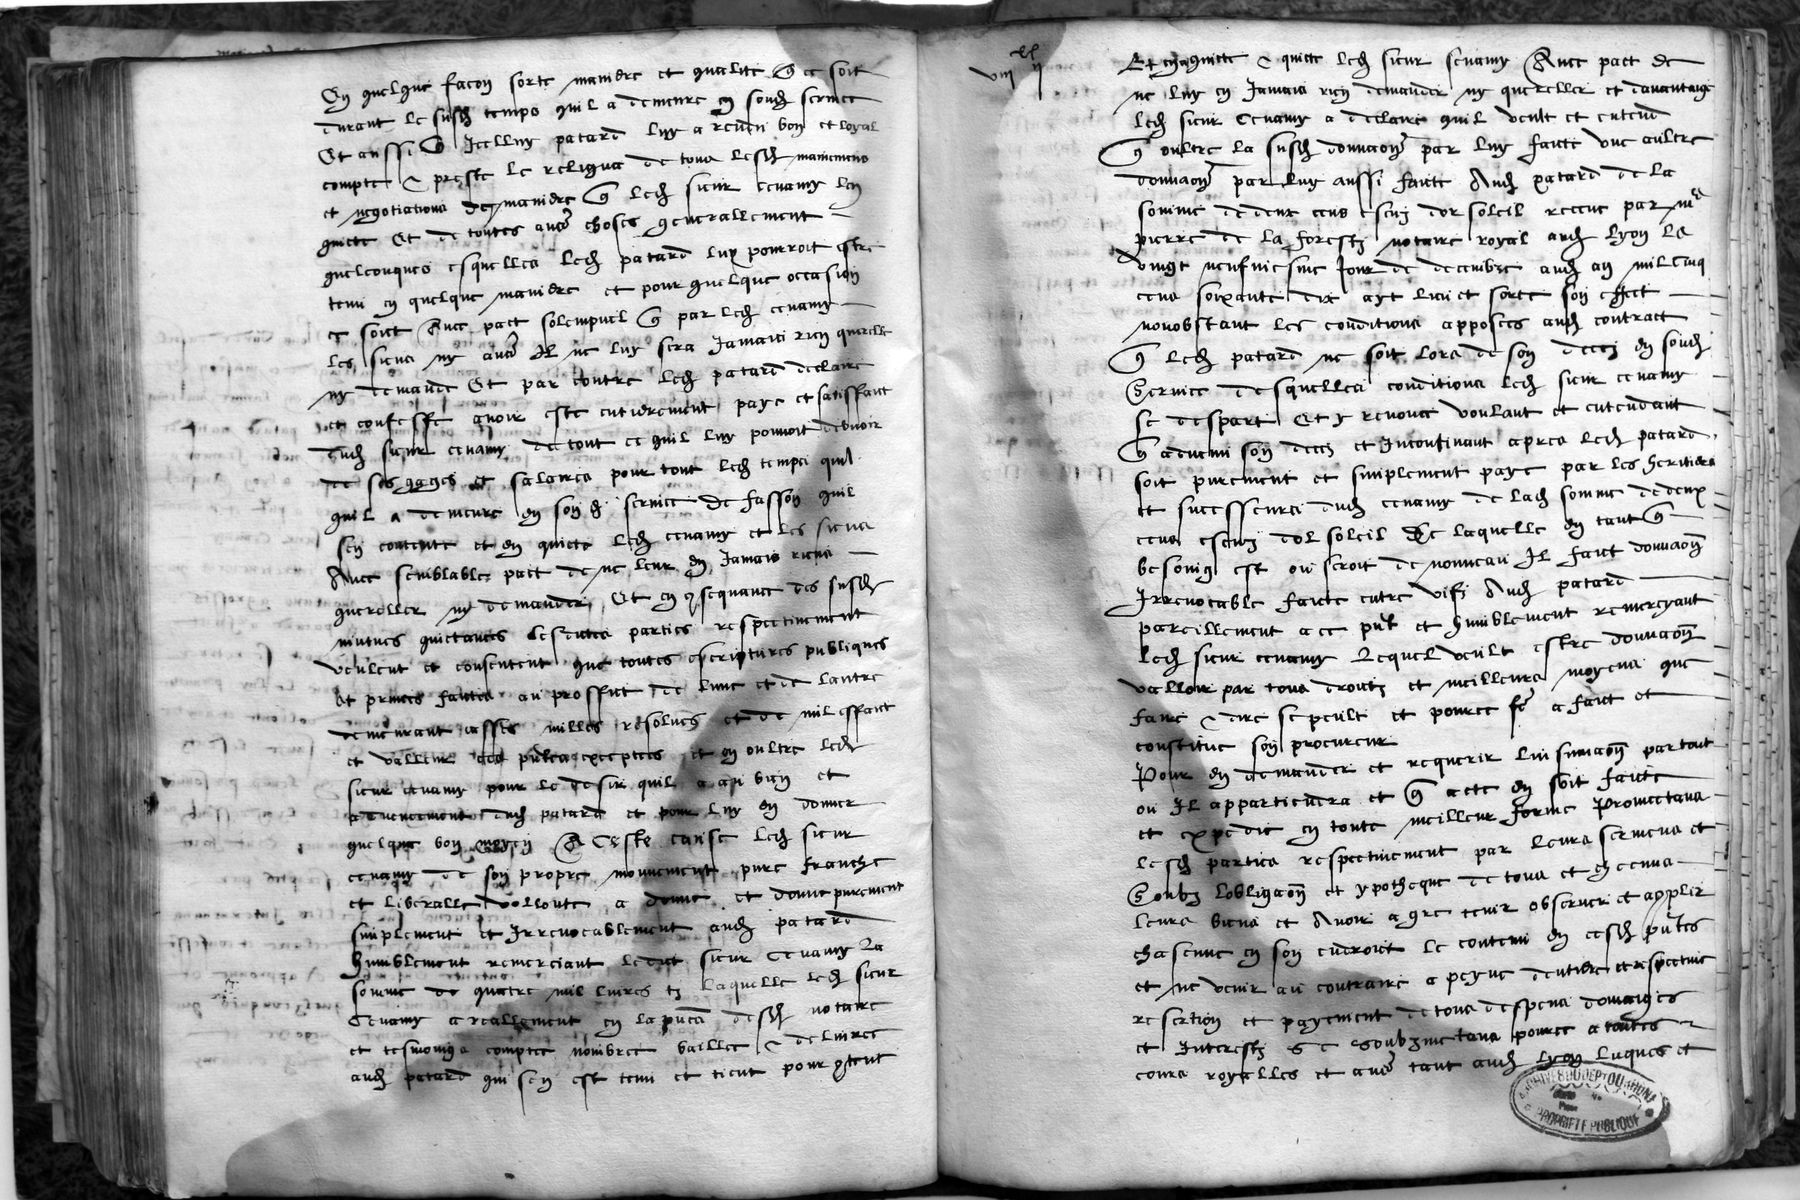 En quelque facon sorte maniere et qualite q ce soit
durant le susd temps quil a demeure en soud service
Et aussi q Icelluy patard luy a rendu bon et loyal
compte & preste le reliqua de tous lesd maniemens
et negotiations de maniere q led sieur cenamy len
quicte Et de toutes aues choses generallement
quelconques esquelles led patard luy pourroit estre
tenu en quelque maniere et pour quelque occasion
ce soit Avec pact solempnel q par led cenamy
les siens ny aues Il ne luy sera Jamais rien querelle
ny demande Et par contre led patard declaire
et confesse avoir este entierement paye et satisfaict
dud sieur cenamy de tout ce quil luy pouvoit debvoir
de ses gages et salaires pour tout led temps quil
quil a demeure en son d service De fasson quil
sen contente et en quicte led cenamy et les siens
Avec semblable pact de ne leur en Jamais riens
quereller ny demander Et en qsequance des susd
mutues quictances lesdites parties respectivement
veulent et consentent que toutes escriptures publiques
et privees faites au proffict de lune et de lautre
demeurant casses nulles resolues et de nul effaict
et valleur ces pntes exceptees et en oultre led
sieur cenamy pour le desir quil a au bien et
advencement dud patard et pour luy en donner
quelque bon moyen A Ceste cause led sieur
cenamy de son propre mouvement pure franche
et liberalle vollonte a donne et donne purement
simplement et Irrevocablement aud patard
humblement remerciant ledict sieur Cenamy La
somme de quatre mil livres tz laquelle led sieur
Cenamy a reallement en la pnce desd notaire
et tesmoings comptee nombree baillee & delivree
aud patard qui sen est tenu et tient pour qtent
viii xx ii
Et en quicte & quicte led sieur cenamy Avec pact de
ne luy en Jamais rien demander ny quereller et davantaige
led sieur Cenamy a declaire quil veult et entend
q oultre la susd donnaon par luy faicte une aultre
donnaon par luy aussi faicte Aud patard de la
somme de deux cens escuz dor soleil receue par me
pierre de la forestz notaire royal aud Lyon le
vingt neufviesme Jour de decembre aud an mil cinq
cens soixante dix ayt lieu et sorte son effect
nonobstant les conditions apposees aud contract
q led patard ne soit lors de son deces en soud
Service desquelles conditions led sieur cenamy
se despart Et y renonce voulant et entendant
q advenu son deces et Incontinant apres led patard
soit purement et simplement paye par les heritiers
et successeurs dud cenamy de lad somme de deux
cens escuz dol soleil De laquelle en tant q
besoing est ou seroit de nouveau Il faict donnaon
Irrevocable faicte entre vifz Aud patard
pareillement a ce pnt et humblement remercyant
led sieur cenamy Lequel veult estre donnaon
valloir par tous droictz et meilleurs moyens que
faire & dire se peult et pource fe a faict et
constitue son procureur
Pour en demander et requerir linsinuaon partout
ou Il appartiendra et q acte en soit faicte
et expedie en toute meilleur forme Promectans
lesd parties respectivement par leurs sermens et
Soubz lobligaon et ypotheque de tous et chacuns
leurs biens et Avoir a gre tenir observer et acplir
chascune en son endroict le contenu en cesd pntes
et ne venir au contraire a peyne dentiere et respective
resertion et payement de tous despens domaiges
et Interestz Se soubzmectans pource a toutes
cours royalles et aues tant aud Lyon Luques et
ARCHIVES DU DEPT DU RHONE
PROPRIETE PUBLIQUE